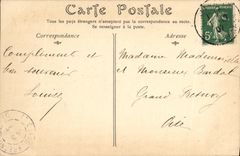 Carte Postale
Tous les pays étrangers n'acceptent pas la correspondance au recto.
Se renseigner à la poste.
Correspondance
Adresse
Compliment et
souvenir
Louise
Madame Mademoiselle
et Monsieur
Grand Fresnoy
Oise
5